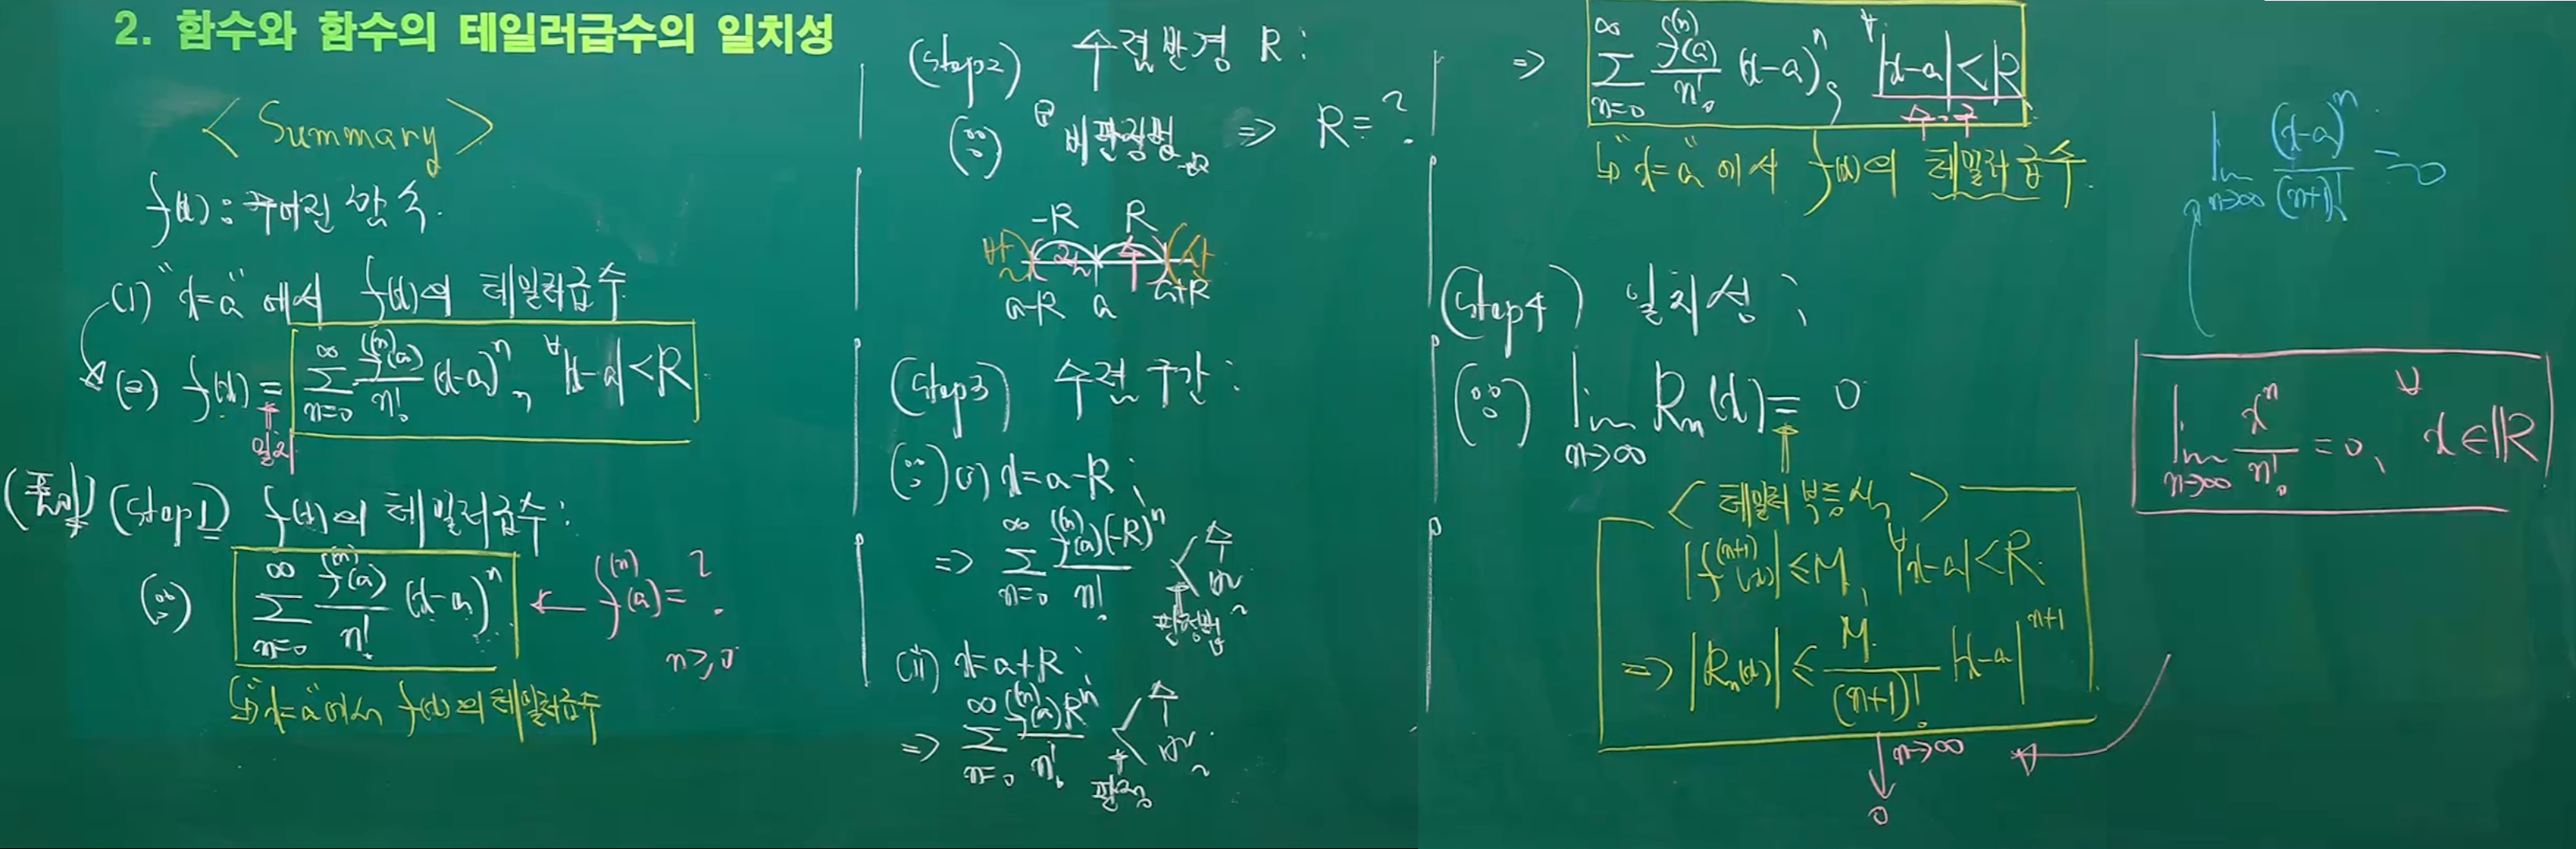 2. 함수와 함수의 테일러급수의 일치성
< Summary >
f(x) : 주어진 함수.
(1) "x=a"에서 f(x)의 테일러급수
(2) f(x) = ∑_{n=0}^{∞} f^{(n)}(a)/n! (x-a)^n, ∀|x-a|<R
일치
(풀이) (Step1) f(x)의 테일러급수 :
(∵) ∑_{n=0}^{∞} f^{(n)}(a)/n! (x-a)^n ← f^{(n)}(a) = ?
n≥0
↳ "x=a"에서 f(x)의 테일러급수
(Step2) 수렴반경 R :
(∵) 비판정법 ⇒ R = ?
-R R
발 수 수 발
a-R a a+R
(Step3) 수렴구간 :
(∵) (i) x=a-R ;
⇒ ∑_{n=0}^{∞} f^{(n)}(a)(-R)^n/n! < 수 발
판정법
(ii) x=a+R ;
⇒ ∑_{n=0}^{∞} f^{(n)}(a)R^n/n! < 수 발
판정
⇒ ∑_{n=0}^{∞} f^{(n)}(a)/n! (x-a)^n, ∀|x-a|<R
수.구
↳ "x=a"에서 f(x)의 테일러급수.
(Step4) 일치성 ;
(∵) lim_{n→∞} R_n(x) = 0
< 테일러 부등식 >
|f^{(n+1)}(x)| ≤ M, ∀|x-a|<R
⇒ |R_n(x)| ≤ M/(n+1)! |x-a|^{n+1}
↓ n→∞
0
lim_{n→∞} (x-a)^n/(n+1)! = 0
lim_{n→∞} x^n/n! = 0, ∀x∈ℝ